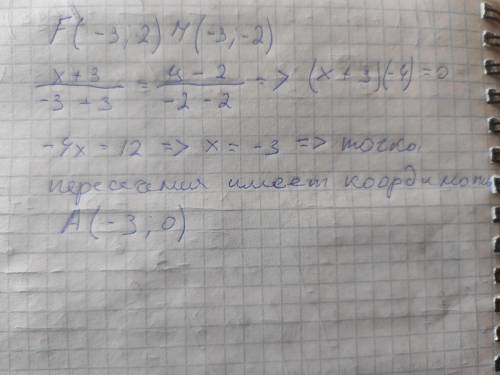 F(-3; 2) M(-3; -2)
(x+3)/(-3+3) = (y-2)/(-2-2) => (x+3)(-4)=0
-4x = 12 => x = -3 => точка
пересечения имеет координаты
A(-3; 0)